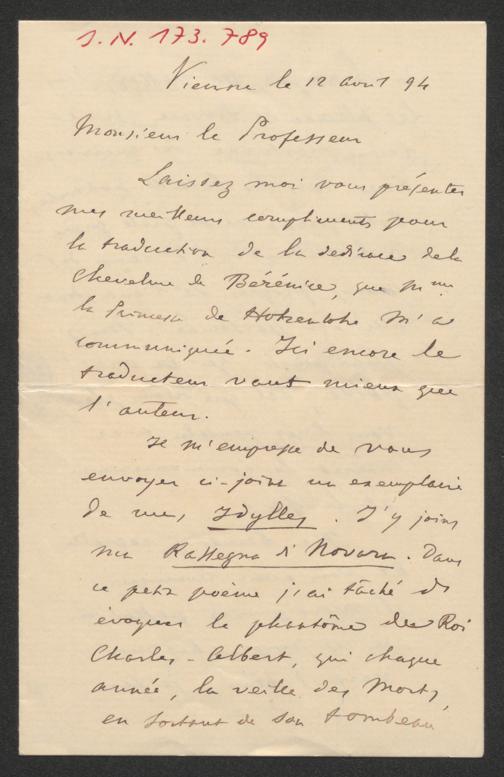 J. N. 173.789
Vienne le 12 avril 94
Monsieur le Professeur
Laissez moi vous présenter
mes meilleurs compliments pour
la traduction de la dedicace de la
Chevelure de Bérénice, que Mme
la Princesse de Hohenlohe m'a
communiquée. Ici encore le
traducteur vaut mieux que
l'auteur.
Je m'empresse de vous
envoyer ci-joint un exemplaire
de mes Idylles. J'y joins
ma Rassegna di Novara. Dans
ce petit poème j'ai tâché de
évoquer le phantôme du Roi
Charles-Albert, qui chaque
année, la veille des Morts,
en sortant de son tombeau